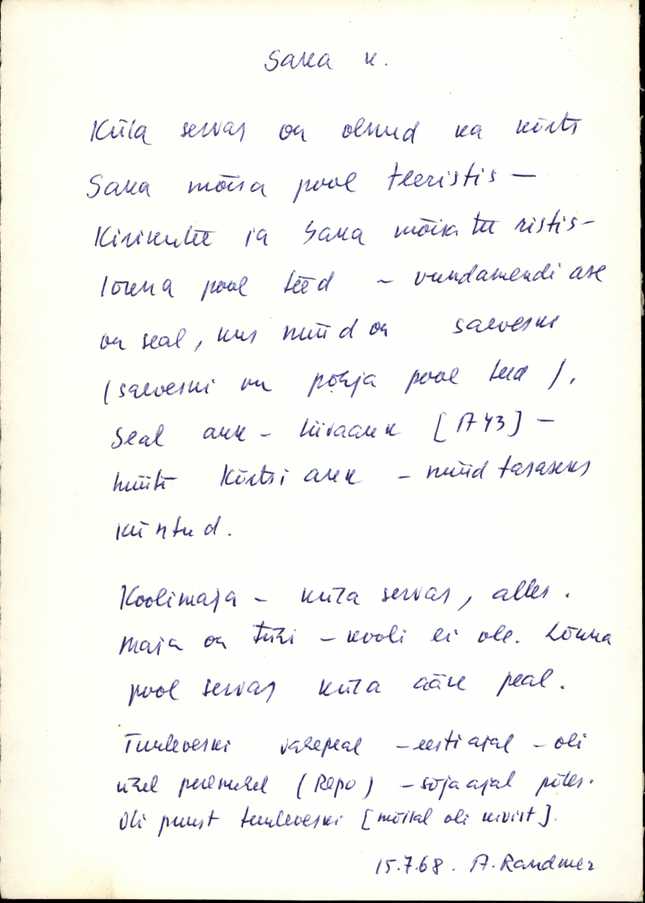 Saka k.
Küla servas on olnud ka kõrts
Saka mõisa pool teeristis –
Kirikutee ja Saka mõisa tee ristis –
lõuna pool teed – vundamendi ase
on seal, kus nüüd on saeveski
(saeveski on põhja pool teed).
Seal auk – liivaauk [A 43] –
hüüti Kõrtsi auk – nüüd tasaseks
küntud.
Koolimaja – küla servas, alles.
Maja on tühi – kooli ei ole. Lõuna
pool servas küla ääre peal.
Tuuleveski vahepeal – eesti ajal – oli
ühel peremehel (Repo) – sõja ajal põles.
Oli puust tuuleveski [mõisal oli kivist].
15.7.68. A. Randmer